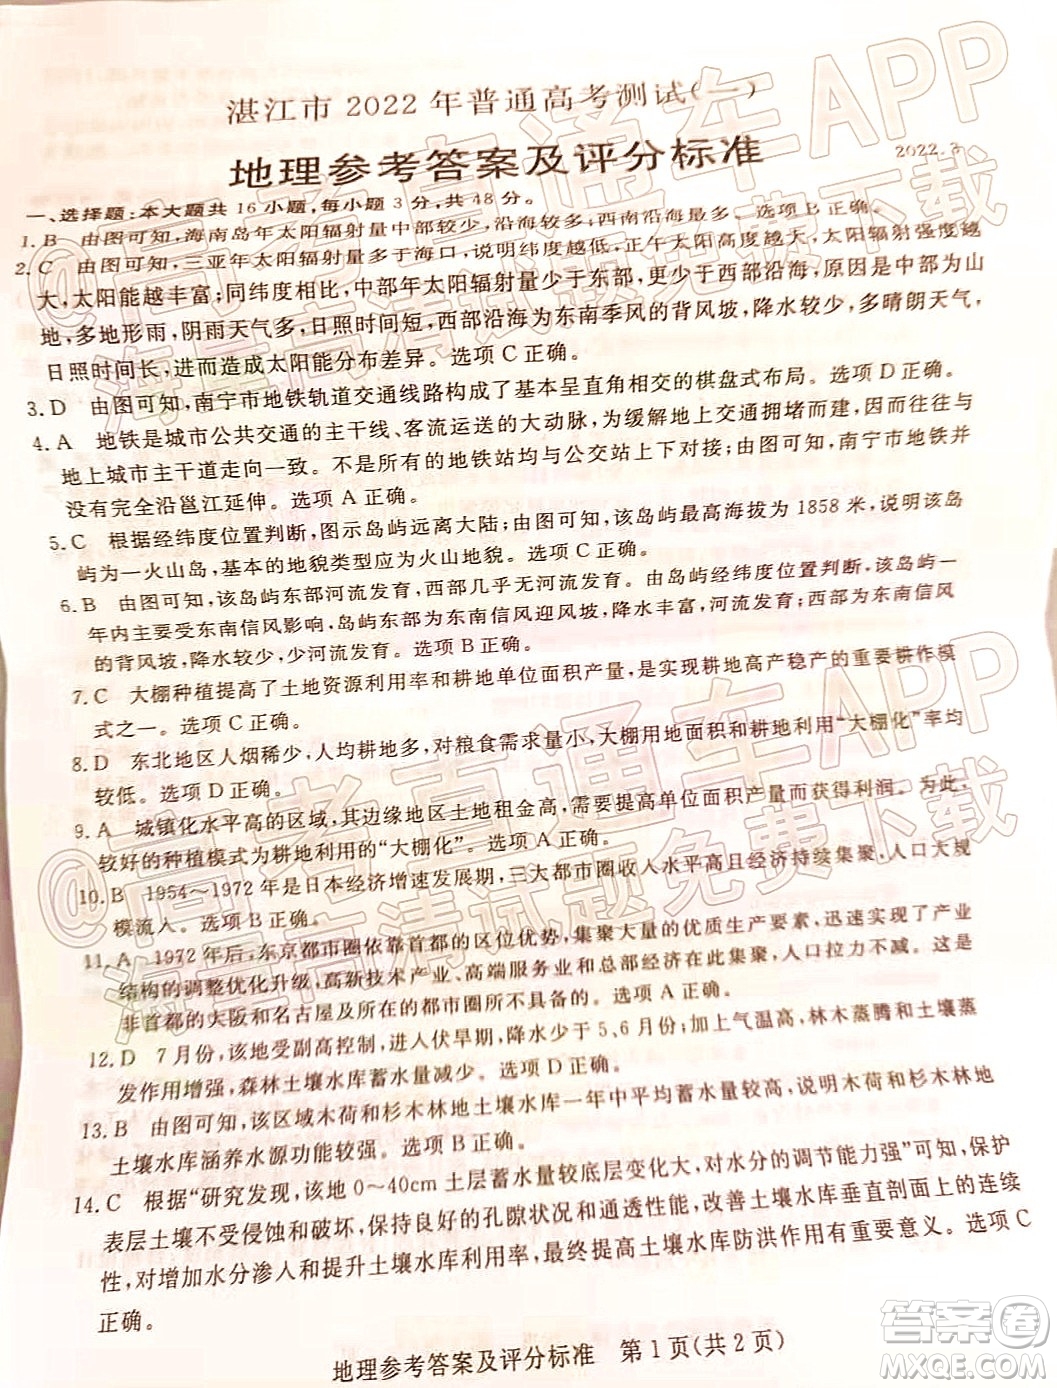 湛江市 2022 年普通高考测试(一)
地理参考答案及评分标准
2022.3
一、选择题:本大题共 16 小题,每小题 3 分,共 48 分。
1. B 由图可知,海南岛年太阳辐射量中部较少,沿海较多,西南沿海最多。选项 B 正确。
2. C 由图可知,三亚年太阳辐射量高于海口,说明纬度越低,正午太阳高度越大,太阳辐射强度越
大,太阳能越丰富;同纬度相比,中部年太阳辐射量少于东部,更少于西部沿海,原因是中部为山
地,多地形雨,阴雨天气多,日照时间短,西部沿海为东南季风的背风坡,降水较少,多晴朗天气,
日照时间长,进而造成太阳能分布差异。选项 C 正确。
3. D 由图可知,南宁市地铁轨道交通线路构成了基本呈直角相交的棋盘式布局。选项 D 正确。
4. A 地铁是城市公共交通的主干线、客流运送的大动脉,为缓解地上交通拥堵而建,因此多与
地上城市主干道走向一致。不是所有的地铁站均与公交站上下对接;由图可知,南宁市地铁并
没有完全沿邕江延伸。选项 A 正确。
5. C 根据经纬度位置判断,图示岛屿远离大陆;由图可知,该岛屿最高海拔为 1858 米,说明该岛
屿为一火山岛,基本的地貌类型应为火山地貌。选项 C 正确。
6. B 由图可知,该岛屿东部河流发育,西部几乎无河流发育。由岛屿经纬度位置判断,该岛屿一
年内主要受东南信风影响,岛屿东部为东南信风迎风坡,降水丰富,河流发育;西部为东南信风
的背风坡,降水较少,少河流发育。选项 B 正确。
7. C 大棚种植提高了土地资源利用率和耕地单位面积产量,是实现耕地高产稳产的重要耕作模
式之一。选项 C 正确。
8. D 东北地区人烟稀少,人均耕地多,对粮食需求量小,大棚用地面积和耕地利用“大棚化”率均
较低。选项 D 正确。
9. A 城镇化水平高的区域,其边缘地区土地租金高,需要提高单位面积产量而获得利润。为此,
较好的种植模式为耕地利用的“大棚化”。选项 A 正确。
10. B 1954～1972 年是日本经济增速发展期,三大都市圈收入水平高且经济持续集聚,人口大规
模流入。选项 B 正确。
11. A 1972 年后,东京都市圈依靠首都的区位优势,集聚大量的优质生产要素,迅速实现了产业
结构的调整优化升级,高新技术产业、高端服务业和总部经济在此集聚,人口拉力不减。这是
非首都的大阪和名古屋及所在的都市圈所不具备的。选项 A 正确。
12. D 7 月份,该地受副高控制,进入伏旱期,降水少于 5、6 月份;加上气温高,林木蒸腾和土壤蒸
发作用增强,森林土壤水库蓄水量减少。选项 D 正确。
13. B 由图可知,该区域木荷和杉木林地土壤水库一年中平均蓄水量较高,说明木荷和杉木林地
土壤水库涵养水源功能较强。选项 B 正确。
14. C 根据“研究发现,该地 0～40cm 土层蓄水量较底层变化大,对水分的调节能力强”可知,保护
表层土壤不受侵蚀和破坏,保持良好的孔隙状况和通透性能,改善土壤水库垂直剖面上的连续
性,对增加水分渗入和提升土壤水库利用率,最终提高土壤水库防洪作用有重要意义。选项 C
正确。
地理参考答案及评分标准 第 1 页(共 2 页)
@高考直通车APP
海量高清试题免费下载
@高考直通车APP
海量高清试题免费下载
答案圈
MXQE.COM